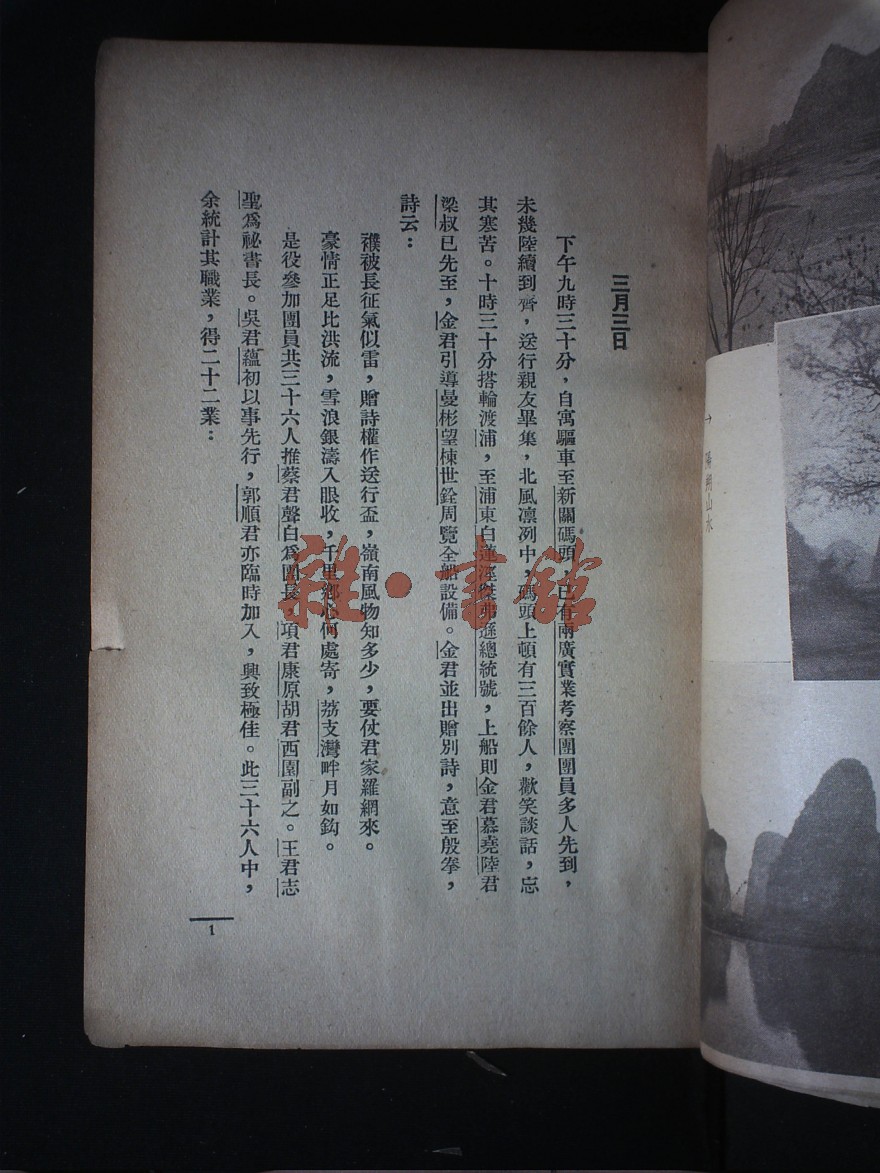 三月三日
下午九時三十分，自寓驅車至新關碼頭，已有兩廣實業考察團團員多人先到，
未幾陸續到齊，送行親友畢集，北風凛冽中，碼頭上頓有三百餘人，歡笑談話，忘
其寒苦。十時三十分搭輪渡浦，至浦東白蓮涇傑弗遜總統號，上船則金君慕堯陸君
梁叔已先至，金君引導曼彬望棟世銓周覽全船設備。金君並出贈別詩，意至殷拳，
詩云：
襆被長征氣似雷，贈詩權作送行盃，嶺南風物知多少，要仗君家羅網來。
豪情正足比洪流，雪浪銀濤入眼收，千里鄉心何處寄，荔支灣畔月如鈎。
是役參加團員共三十六人推蔡君聲白爲團長，項君康原胡君西園副之。王君志
聖爲祕書長。吳君蘊初以事先行，郭順君亦臨時加入，興致極佳。此三十六人中，
余統計其職業，得二十二業：
1
→ 陽朔山水
雜·書館